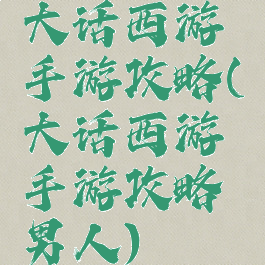 大话西游
手游攻略(
大话西游
手游攻略
男人)